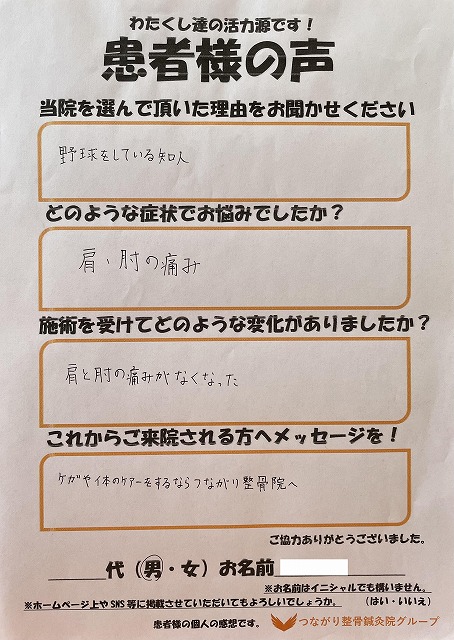 わたくし達の活力源です！
患者様の声
当院を選んで頂いた理由をお聞かせください
野球をしている知人
どのような症状でお悩みでしたか？
肩、肘の痛み
施術を受けてどのような変化がありましたか？
肩と肘の痛みがなくなった
これからご来院される方へメッセージを！
ケガや体のケアーをするならつながり整骨院へ
ご協力ありがとうございました。
代（男・女）お名前
※お名前はイニシャルでも構いません。
※ホームページ上やSNS等に掲載させていただいてもよろしいでしょうか。（はい・いいえ）
患者様の個人の感想です。
つながり整骨鍼灸院グループ